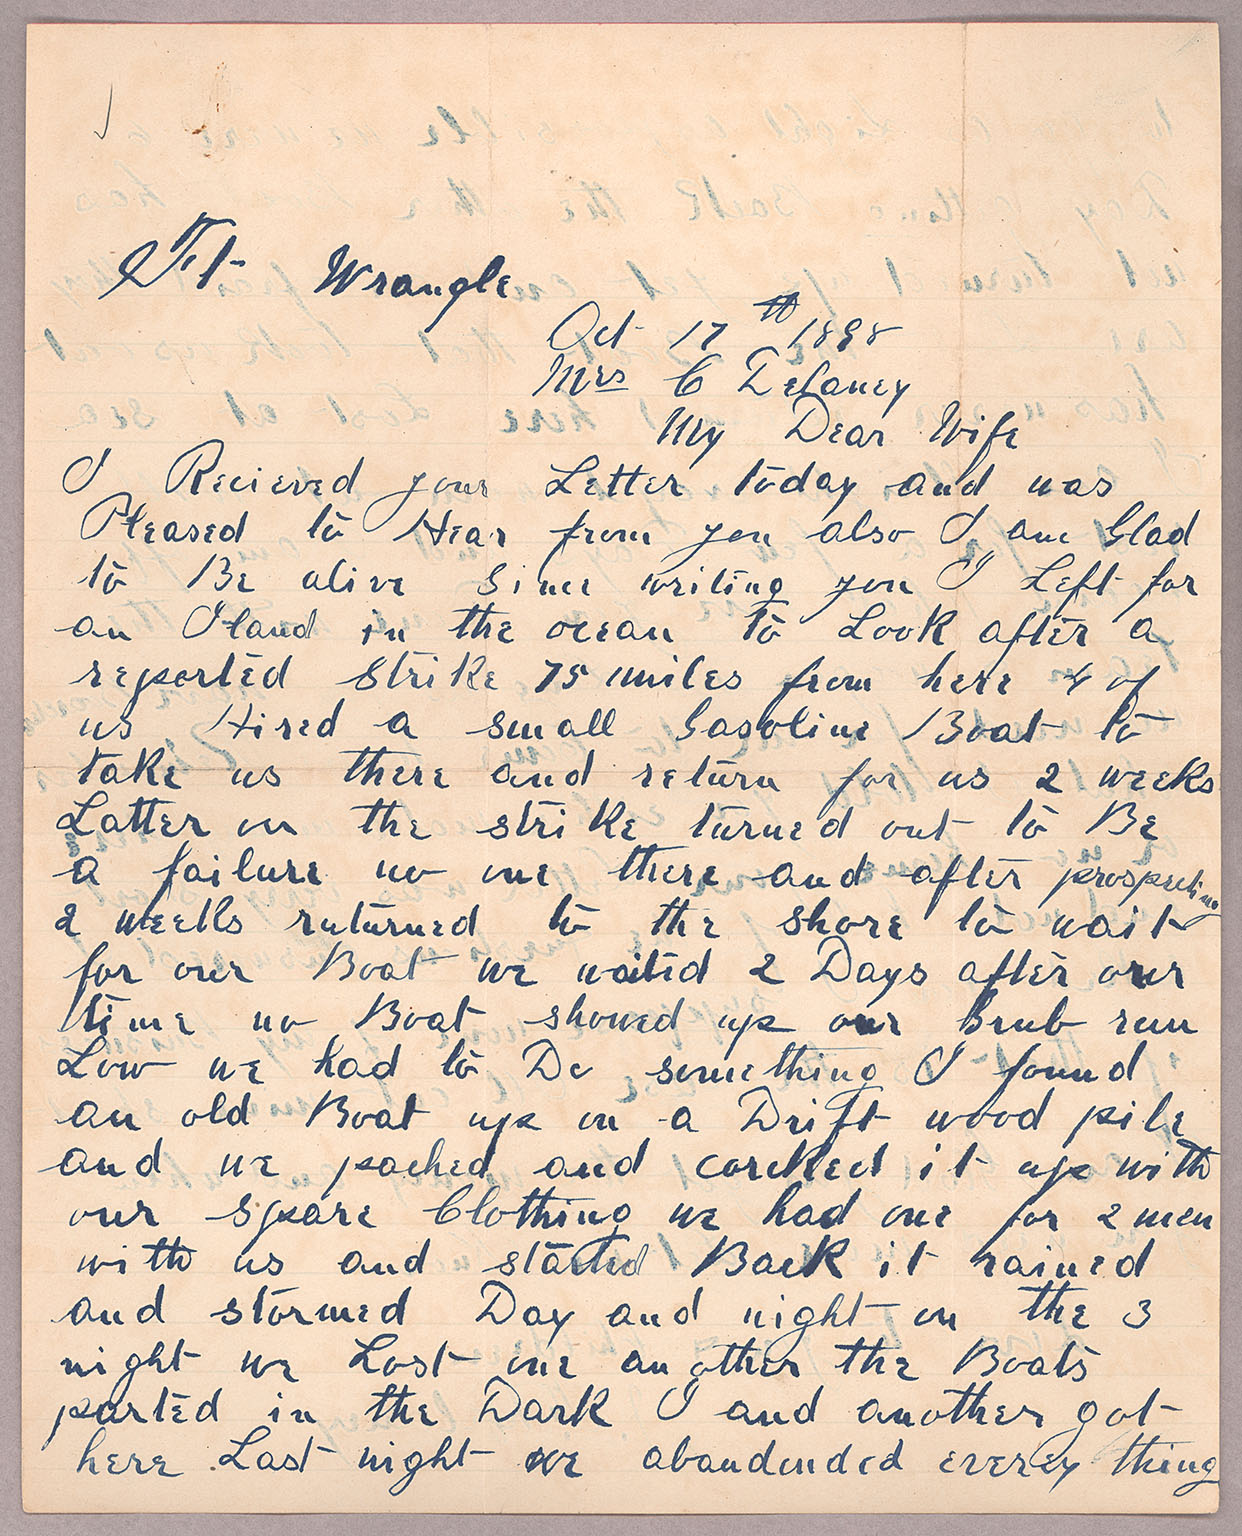 Ft Wrangle
Oct 17th 1898
Mrs C Delaney
My Dear Wife
I Recieved your Letter today and was
Pleased to Hear from you also I am Glad
to Be alive Since writing you I Left for
an Iland in the ocean to Look after a
reported Strike 75 miles from here 4 of
us Hired a small Gasoline Boat to
take us there and return for us 2 weeks
Latter on the strike turned out to Be
a failure no one there and after prospecting
2 weeks returned to the shore to wait
for our Boat we waited 2 Days after our
time no Boat showed up our Grub run
Low we had to Do something I found
an old Boat up on a Drift wood pile
and we patched and corcked it up with
our spare Clothing we had one for 2 men
with us and started Back it rained
and stormed Day and night on the 3
night we Lost one another the Boats
parted in the Dark I and another got
here Last night we abandended everey thing